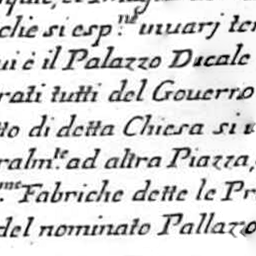 che si esp.ne inuarj ter
ui è il Palazzo Ducale
rati tutti del Gouerno
tto di detta Chiesa si u
ralm.te ad altra Piazza,
.me Fabriche dette le Pr
del nominato Pallazzo